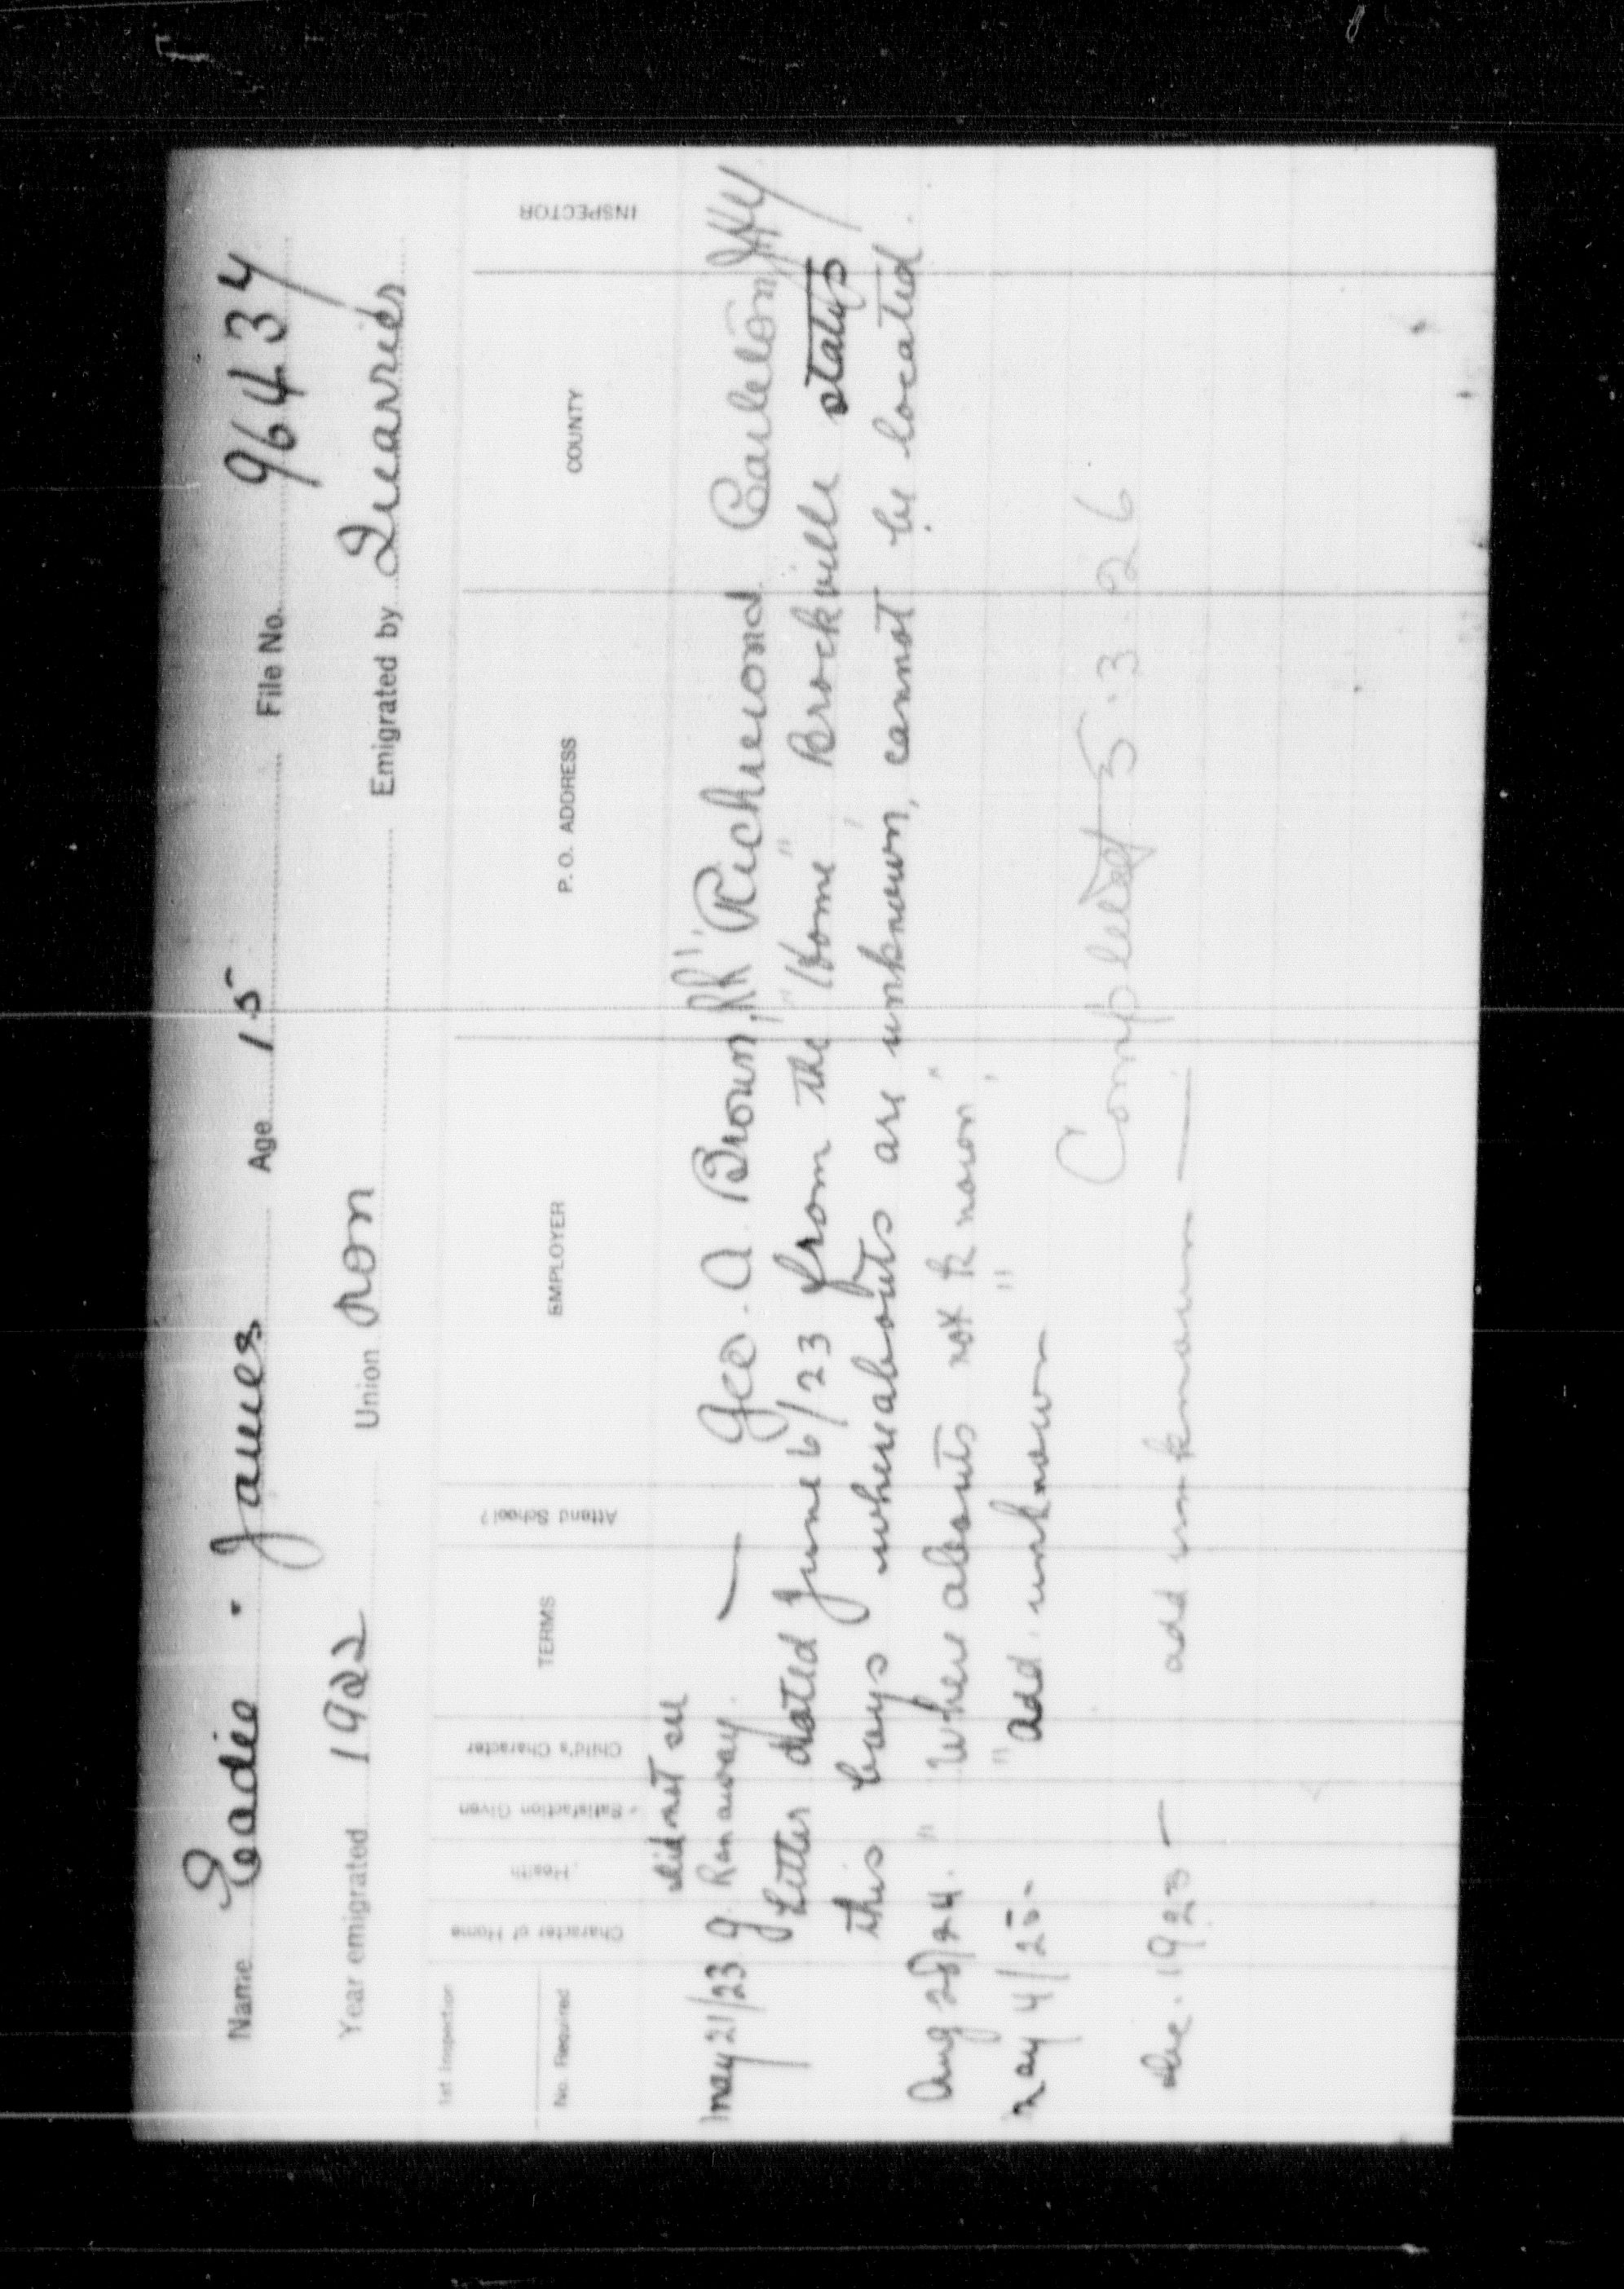 Name Eadie . James Age 15 File No. 96434
Year emigrated 1922 Union non Emigrated by Quearries
1st Inspection
No. Required
Character of Home Health Satisfaction Given Child's Character TERMS Attend School? EMPLOYER P. O. ADDRESS COUNTY INSPECTOR
did not see
May 21/23 g. Ran away. — Geo. A. Brown, RR1, Richmond Carleton
Letter dated June 6/23 from the "Home", Brockville states
this boys whereabouts are unknown, cannot be located.
Aug 28/24. " Where abouts not known "
May 4/25- " add. unknown "
Completed 5.3.26
Dec. 1925 — add unknown —